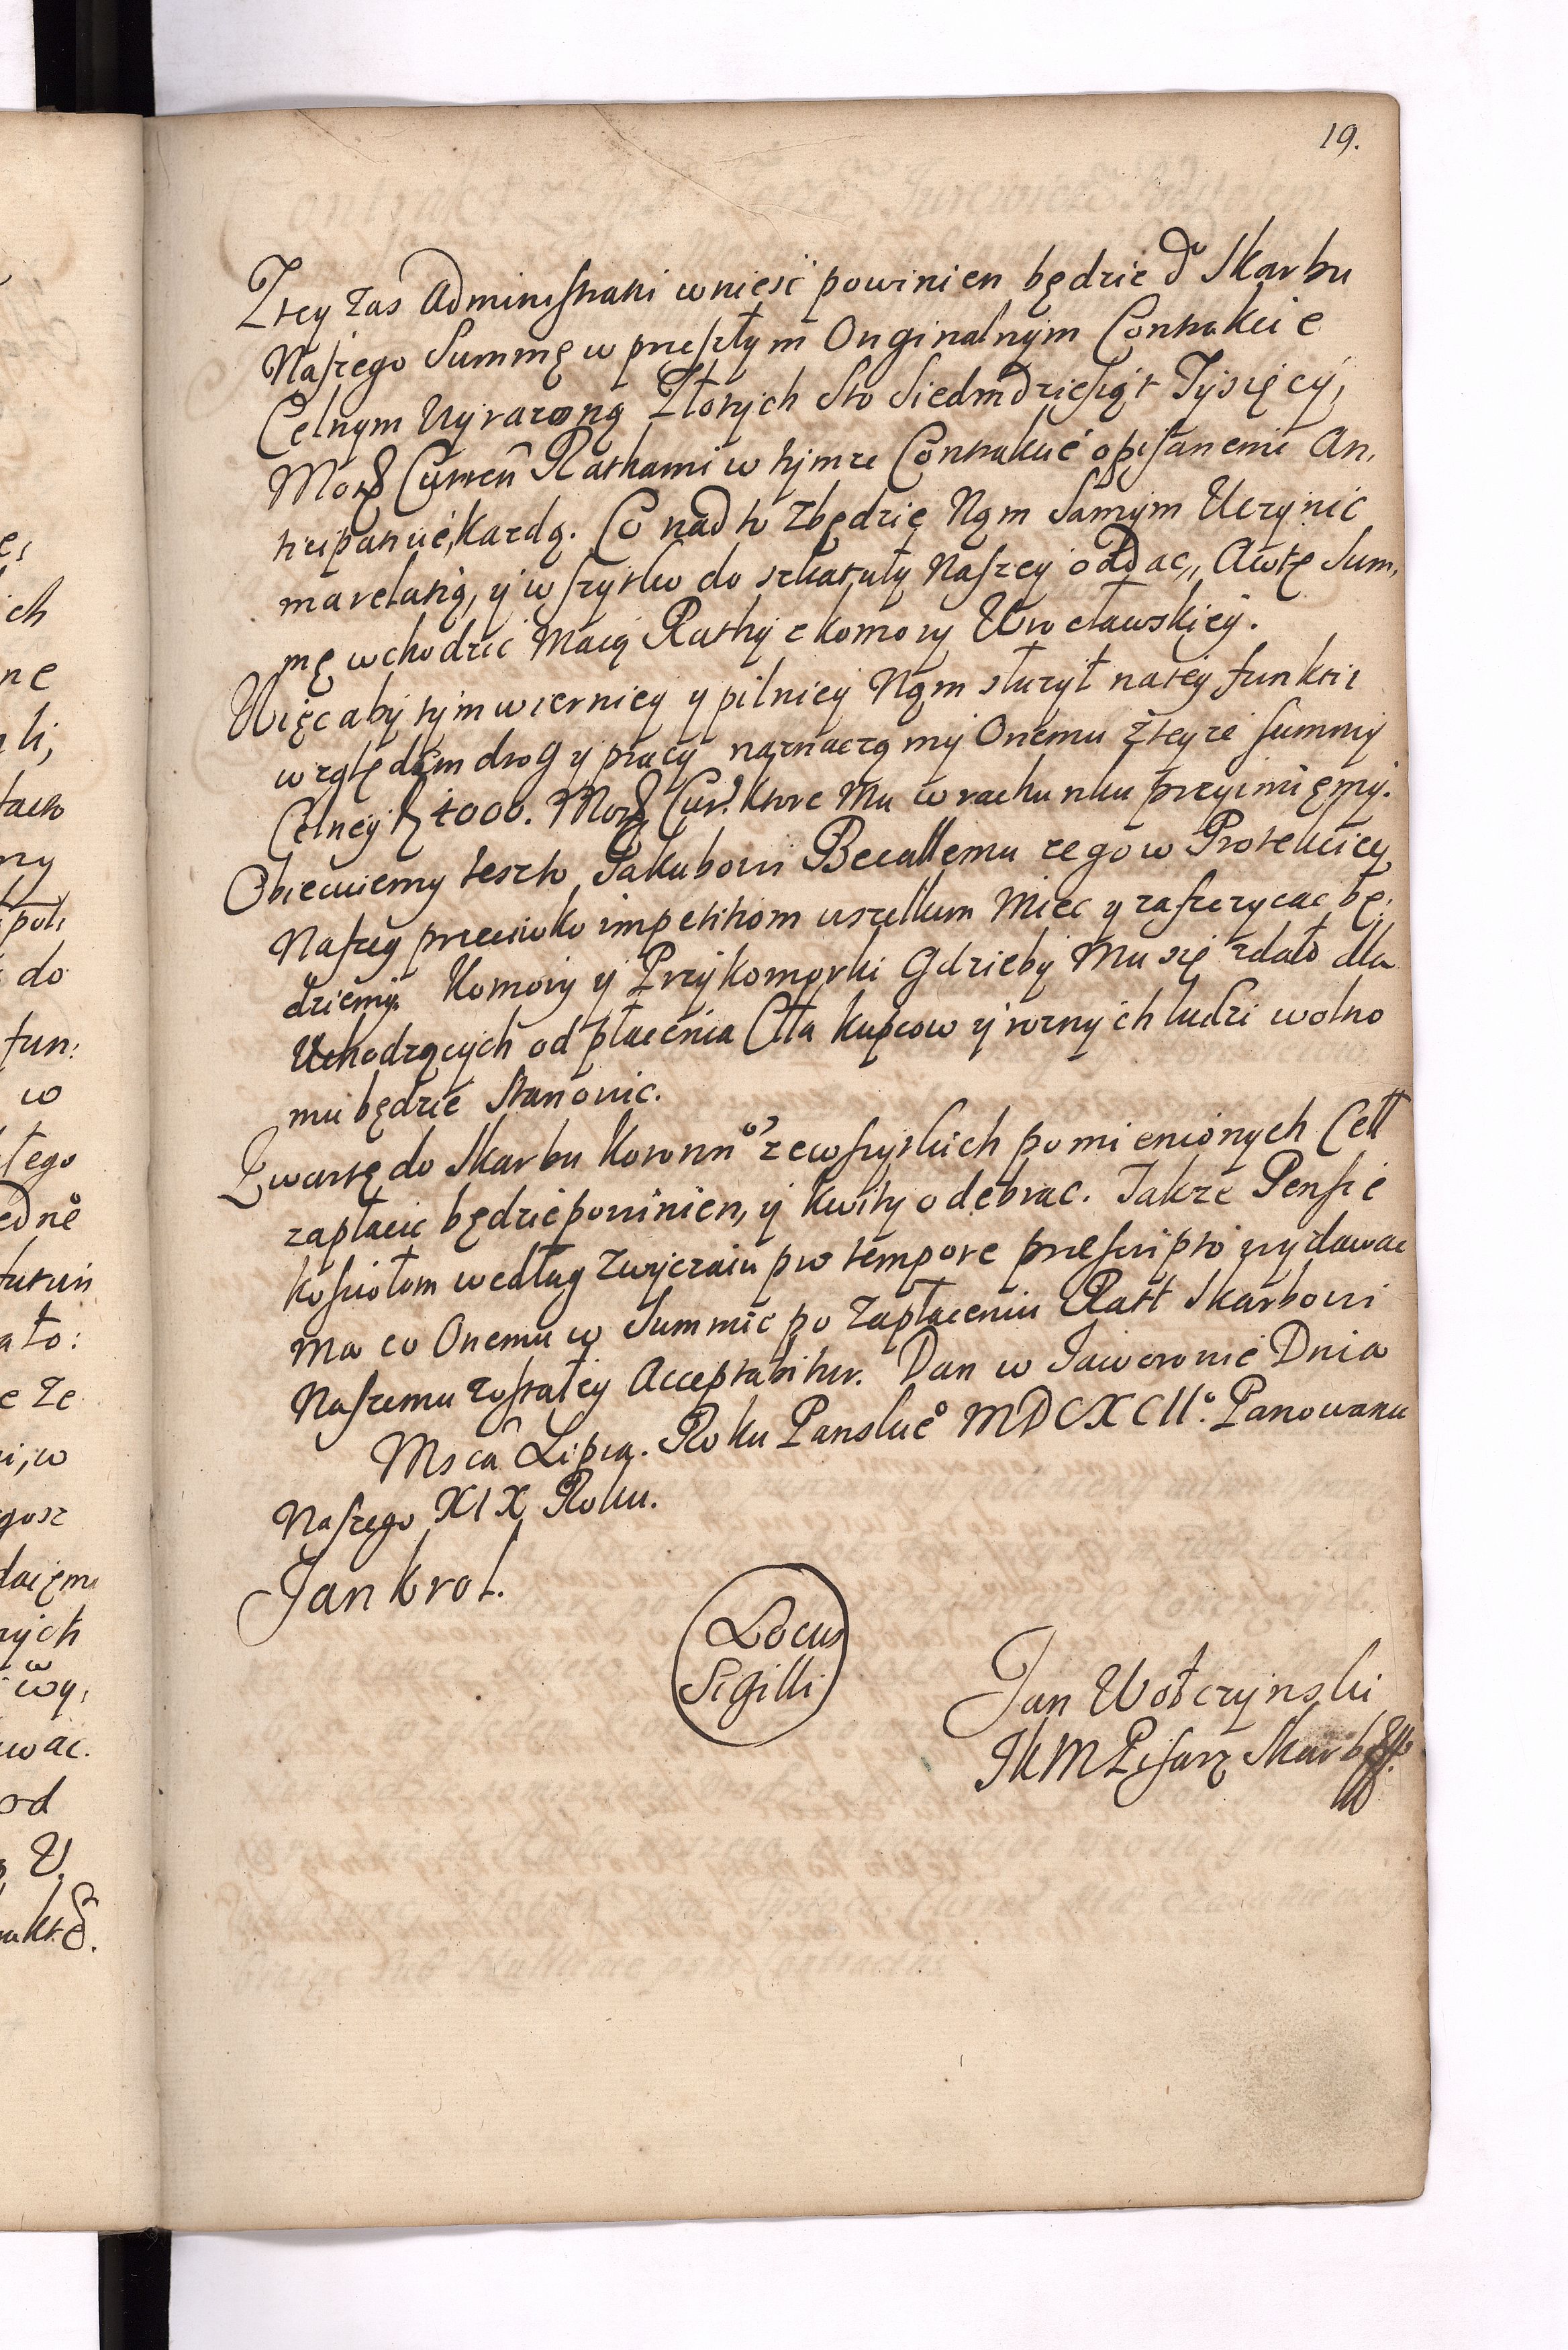 19.
Z tey zas Administratii wniesć powinien będzie do Skarbu
Naszego Summę w przeszłym Originalnym Contrakcie
Celnym Wyrazoną Złotych Sto Siedmdziesiąt Tysięcy,
Mon Curren Rathami w tymze Contrakcie opisanemi An,
ticipativé, kazdą. Co nad to zbędzie Nąm Samym Uczynic
ma relatią, y wszytko do szkatuły Naszey oddac,, A w tę Sum,
mę wchodzic Maią Rathy z komory Wrocławskiey.
Więc aby tym wierniey y pilniey Nąm słuzył na tey funktii
względem drog y pracy naznaczą my Onemu z teyze summy
Celney 4000. Mon Curr. ktore Mu w rachunku przyimięmy.
Obiecuiemy teszto Jakubowi Becallemu zegow Protekciey
Naszey przeciwko impetitiom wszelkim Miec y zaszczycac bę:
dziemy. Komory y Przykomorki Gdzieby Mu się zdało dla
Uchodzących od płacenia Cła kupcow y roznych ludzi wolno
mu będzie Stanowic.
Kwartę do Skarbu Koronn° ze wszytkich pomienionych Cell
zapłacic będzie powinien, y kwity odebrac. Takze Pensie
kosciołom według zwyczaiu pro tempore prescripto wydawac
ma co Onemu w Summie po zapłaceniu Ratt Skarbowi
Naszemu zostałey Acceptabitur. Dan w Jaworowie Dnia
Msca Lipca. Roku Panskie° MDCXCII°. Panowania
Naszego XIX Roku.
Jan krol.
Locus
Sigilli
Jan Wołczynski
JKM Pisarz Skarb